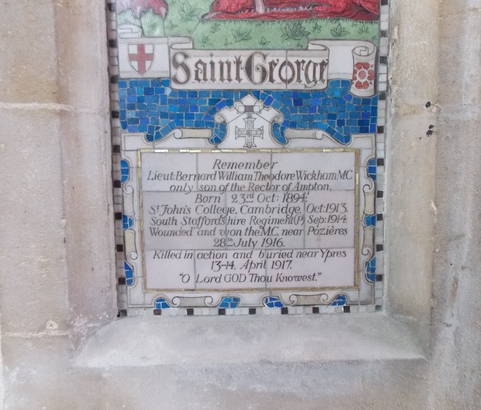 Saint George
Remember
Lieut: Bernard William Theodore Wickham, MC
only son of the Rector of Ampton,
Born 23rd Oct: 1894.
St John's College, Cambridge. Oct: 1913.
South Staffordshire Regiment Sep: 1914.
Wounded and won the MC. near Pozières
28th July 1916.
Killed in action and buried near Ypres
13-14. April 1917.
"O Lord GOD Thou Knowest."